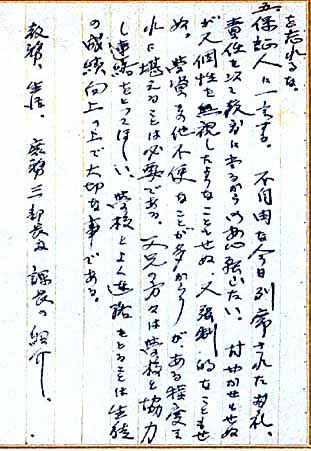 を忘れるな。
五、保証人に一言する。不自由な今日列席されたお礼。
責任を以て教育に当るから御安心願いたい。甘やかせもせぬ
が又個性を無視したようなこともせぬ、又強制的なこともせ
ぬ。学業其他不便なことが多かろうが、ある程度こ
れに堪えることは必要である。父兄の方々は学校と協力
し連絡をとってほしい。学校とよく連絡をとることは生徒
の成績向上の上で大切な事である。
教務、生活、庶務三部長及課長の紹介。